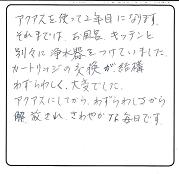 アクアスを使って2年目になります。
それまでは、お風呂、キッチンと
別々に浄水器をつけていました。
カートリッジの交換が結構
わずらわしく、大変でした。
アクアスにしてから、わずらわしさから
解放され、さわやかな毎日です。